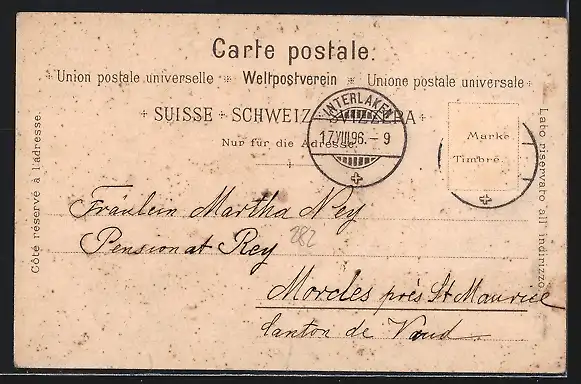 Carte postale.
Union postale universelle + Weltpostverein + Unione postale universale
+ SUISSE + SCHWEIZ + SVIZZERA +
Nur für die Adresse.
Côté réservé à l'adresse.
INTERLAKEN
17.VIII.96.–9
Marke.
Timbre.
Lato riservato all'indirizzo.
Fräulein Martha Ney
Pensionat Rey
282
Morcles près St Maurice
Canton de Vaud.